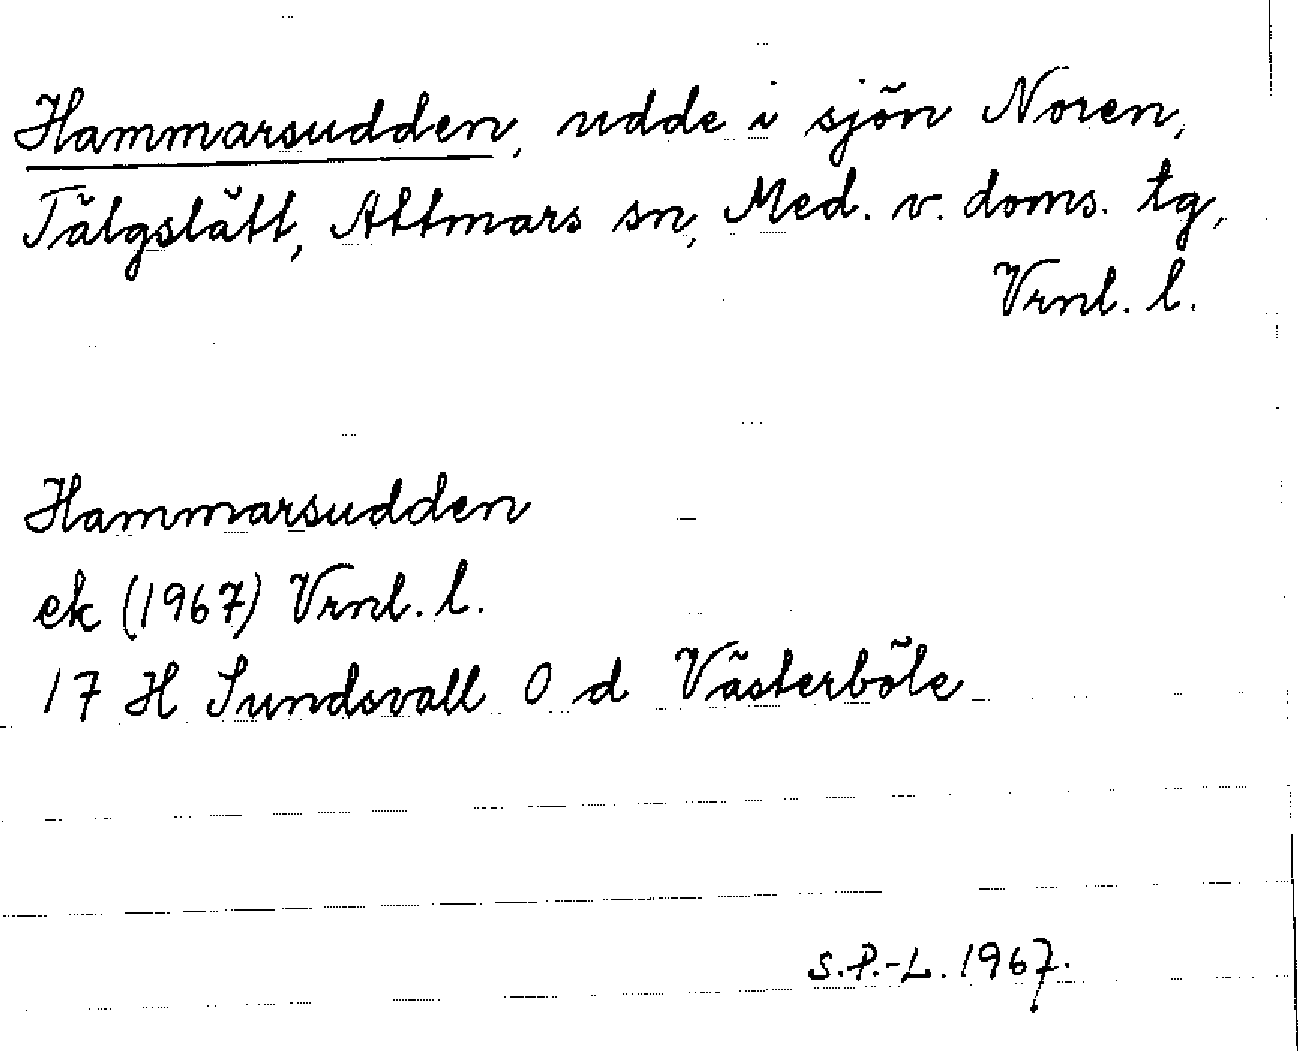 Hammarsudden, udde i sjön Noren,
Tälgslätt, Attmars sn, Med. v. doms. tg,
Vrnl. l.
Hammarsudden
ek (1967) Vrnl. l.
17 H Sundsvall 0 d Västerböle
S.P.-L. 1967.